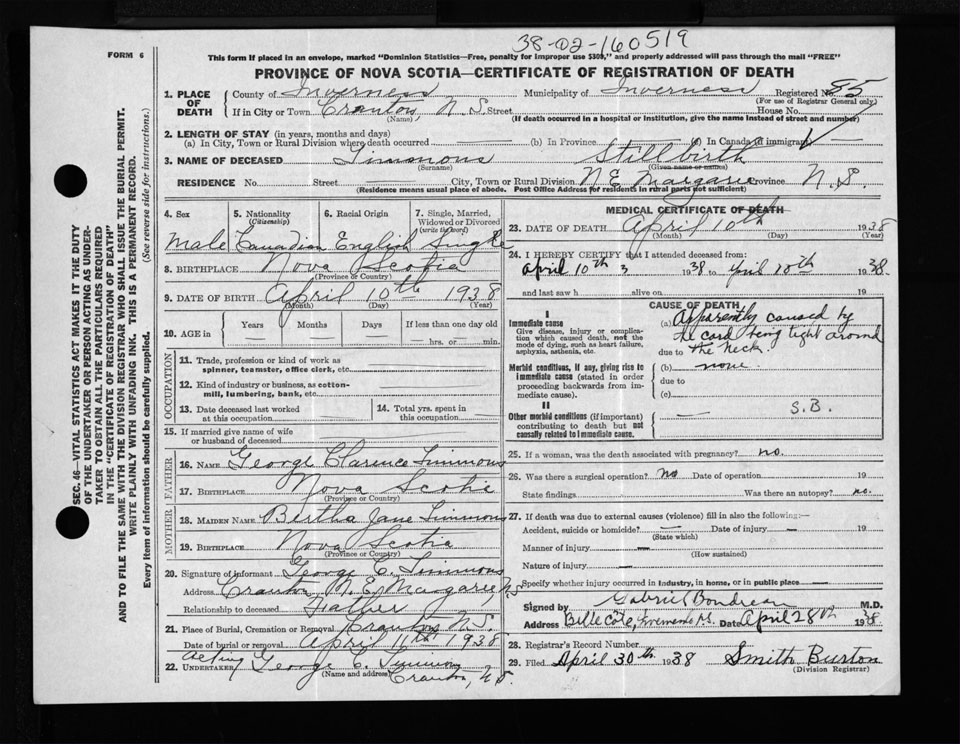 38-02-160519
FORM 6
This form if placed in an envelope, marked "Dominion Statistics—Free, penalty for improper use $300," and properly addressed will pass through the mail "FREE"
PROVINCE OF NOVA SCOTIA—CERTIFICATE OF REGISTRATION OF DEATH
1. PLACE OF DEATH
County of Inverness Municipality of Inverness Registered No. 85
(For use of Registrar General only)
If in City or Town Cranton N.S. Street House No.
(Name) (If death occurred in a hospital or institution, give the name instead of street and number)
2. LENGTH OF STAY (in years, months and days)
(a) In City, Town or Rural Division where death occurred — (b) In Province — (c) In Canada (if immigrant) —
3. NAME OF DECEASED Timmons Stillbirth
(Surname) (Given name or names)
RESIDENCE No. Street — City, Town or Rural Division N E Margaree Province N.S.
(Residence means usual place of abode. Post Office Address for residents in rural parts not sufficient)
4. Sex
Male
5. Nationality
(Citizenship)
Canadian
6. Racial Origin
English
7. Single, Married, Widowed or Divorced
(write the word)
Single
8. BIRTHPLACE Nova Scotia
(Province or Country)
9. DATE OF BIRTH April 10th 1938
(Month) (Day) (Year)
10. AGE in Years Months Days If less than one day old
— — — — hrs. or — min.
OCCUPATION
11. Trade, profession or kind of work as spinner, teamster, office clerk, etc.
12. Kind of industry or business, as cotton-mill, lumbering, bank, etc.
13. Date deceased last worked at this occupation
14. Total yrs. spent in this occupation
15. If married give name of wife or husband of deceased
FATHER
16. NAME George Clarence Timmons
17. BIRTHPLACE Nova Scotia
(Province or Country)
MOTHER
18. MAIDEN NAME Bertha Jane Timmons
19. BIRTHPLACE Nova Scotia
(Province or Country)
20. Signature of informant George C. Timmons
Address Cranton N.E. Margaree N.S
Relationship to deceased Father
21. Place of Burial, Cremation or Removal Cranton N.S.
Date of burial or removal April 1938
Acting
22. UNDERTAKER George C. Timmons
(Name and address) Cranton, N.S.
MEDICAL CERTIFICATE OF DEATH
23. DATE OF DEATH April 10th 1938
(Month) (Day) (Year)
24. I HEREBY CERTIFY that I attended deceased from:
April 10th 3 1938 to April 10th 1938.
and last saw h alive on 19
CAUSE OF DEATH
I
Immediate cause
Give disease, injury or complication which caused death, not the mode of dying, such as heart failure, asphyxia, asthenia, etc.
(a) Apparently caused by
the cord being tight around
due to the neck.
Morbid conditions, if any, giving rise to immediate cause (stated in order proceeding backwards from immediate cause).
(b) none.
due to
(c)
II
Other morbid conditions (if important) contributing to death but not causally related to immediate cause.
— S.B.
25. If a woman, was the death associated with pregnancy? no.
26. Was there a surgical operation? no Date of operation 19
State findings Was there an autopsy? no.
27. If death was due to external causes (violence) fill in also the following:—
Accident, suicide or homicide? — Date of injury — 19
(State which)
Manner of injury —
(How sustained)
Nature of injury —
Specify whether injury occurred in industry, in home, or in public place —
Signed by Gabriel Boudreau M.D.
Address Belle Cote, Inverness N.S. Date April 28th 1938
28. Registrar's Record Number
29. Filed April 30th 1938 Smith Burton
(Division Registrar)
SEC. 46—VITAL STATISTICS ACT MAKES IT THE DUTY
OF THE UNDERTAKER OR PERSON ACTING AS UNDER-
TAKER TO OBTAIN ALL THE PARTICULARS REQUIRED
IN THE "CERTIFICATE OF REGISTRATION OF DEATH"
AND TO FILE THE SAME WITH THE DIVISION REGISTRAR WHO SHALL ISSUE THE BURIAL PERMIT.
WRITE PLAINLY WITH UNFADING INK. THIS IS A PERMANENT RECORD.
Every item of information should be carefully supplied. (See reverse side for instructions.)